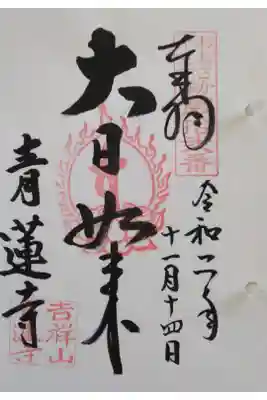 奉拝
令和二年
十一月十四日
大日如来
青蓮寺
吉祥山